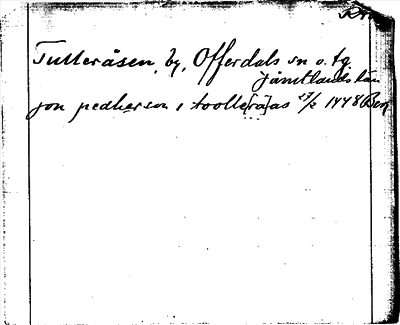 Tulleråsen, by, Offerdals sn o. tg.
Jämtlands län
jon pedherson i toolle[rå]as 27/2 1448